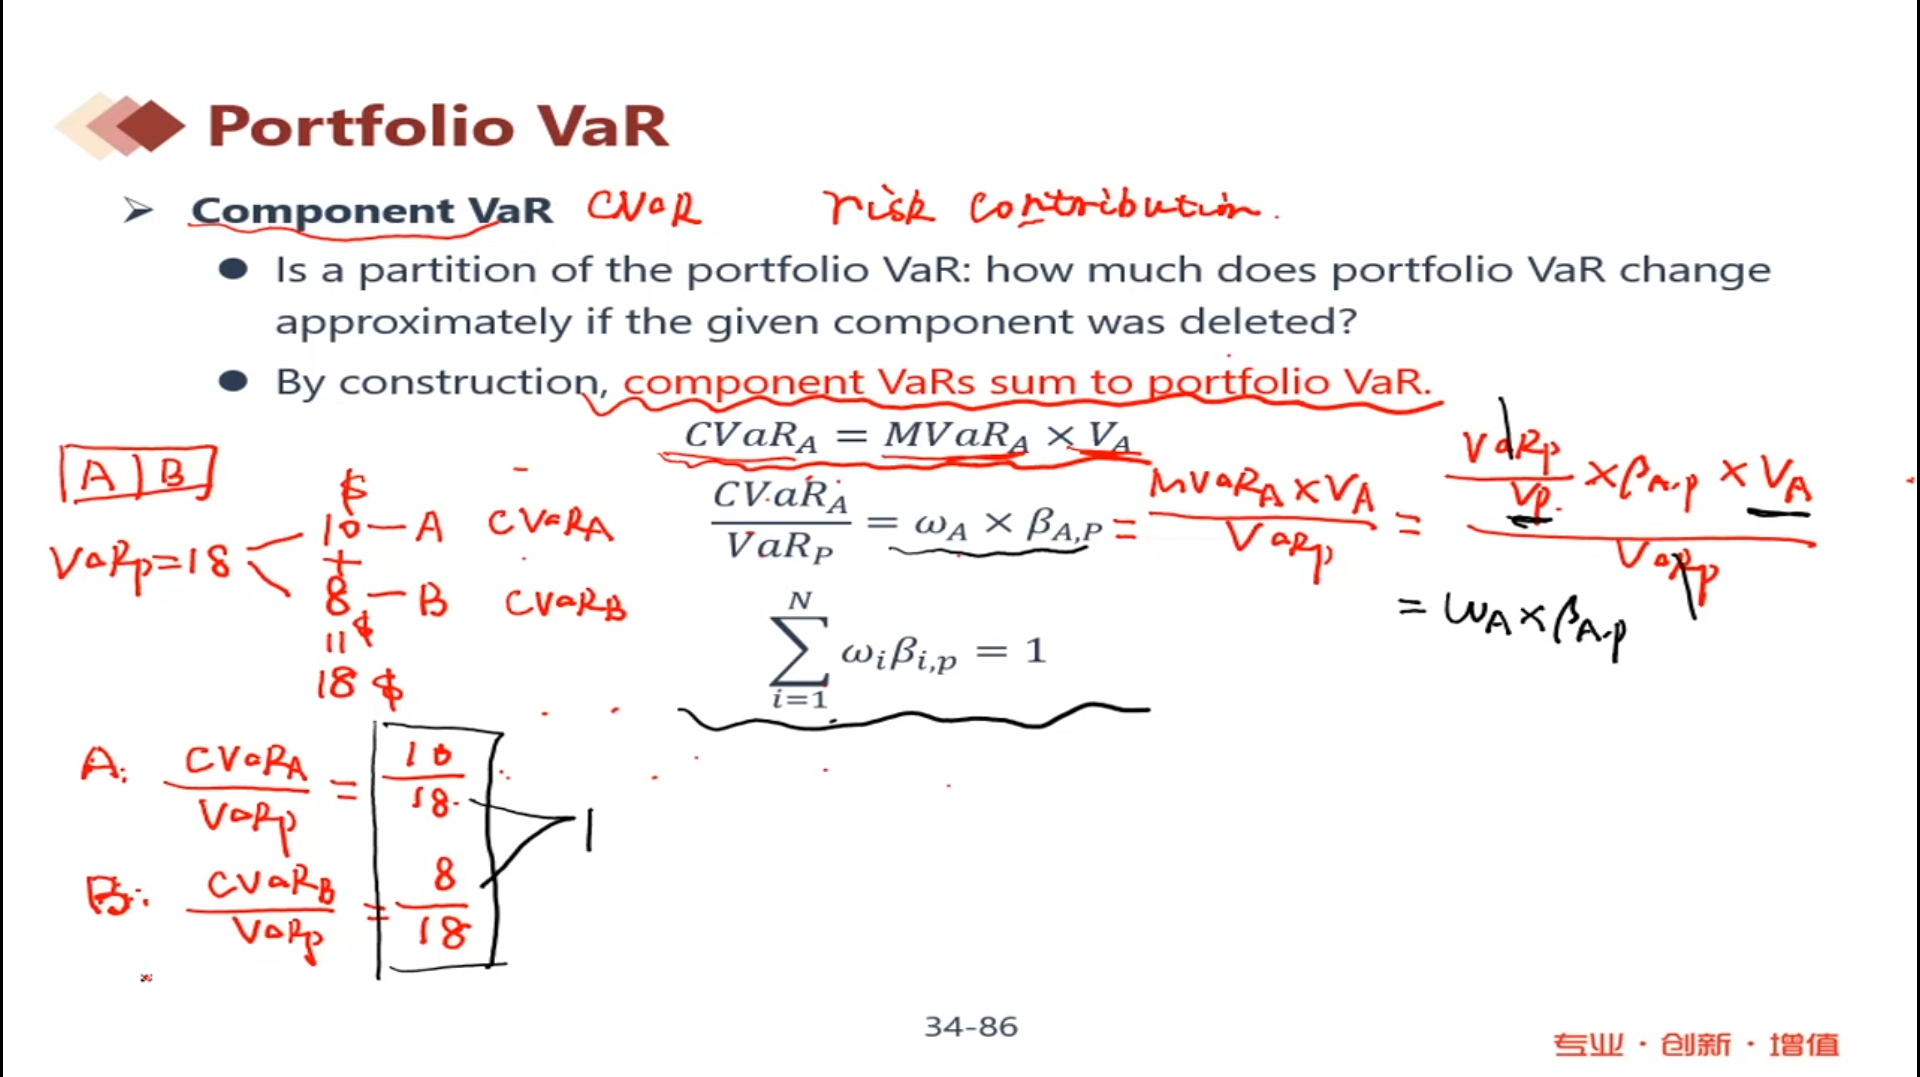 Portfolio VaR
➢ Component VaR CVaR risk contribution.
● Is a partition of the portfolio VaR: how much does portfolio VaR change
approximately if the given component was deleted?
● By construction, component VaRs sum to portfolio VaR.
CVaR_A = MVaR_A × V_A
CVaR_A / VaR_P = ω_A × β_{A,P} = MVaR_A × V_A / VaR_p = (VaR_p / V_p. × β_{A,p} × V_A) / VaR_p
= ω_A × β_{A,p}
\sum_{i=1}^{N} ω_i β_{i,p} = 1
A | B
$
VaR_p = 18
10 — A CVaR_A
+
8 — B CVaR_B
$
||
18 $
A: CVaR_A / VaR_p = 10 / 18
B: CVaR_B / VaR_p = 8 / 18
1
34-86
专业·创新·增值